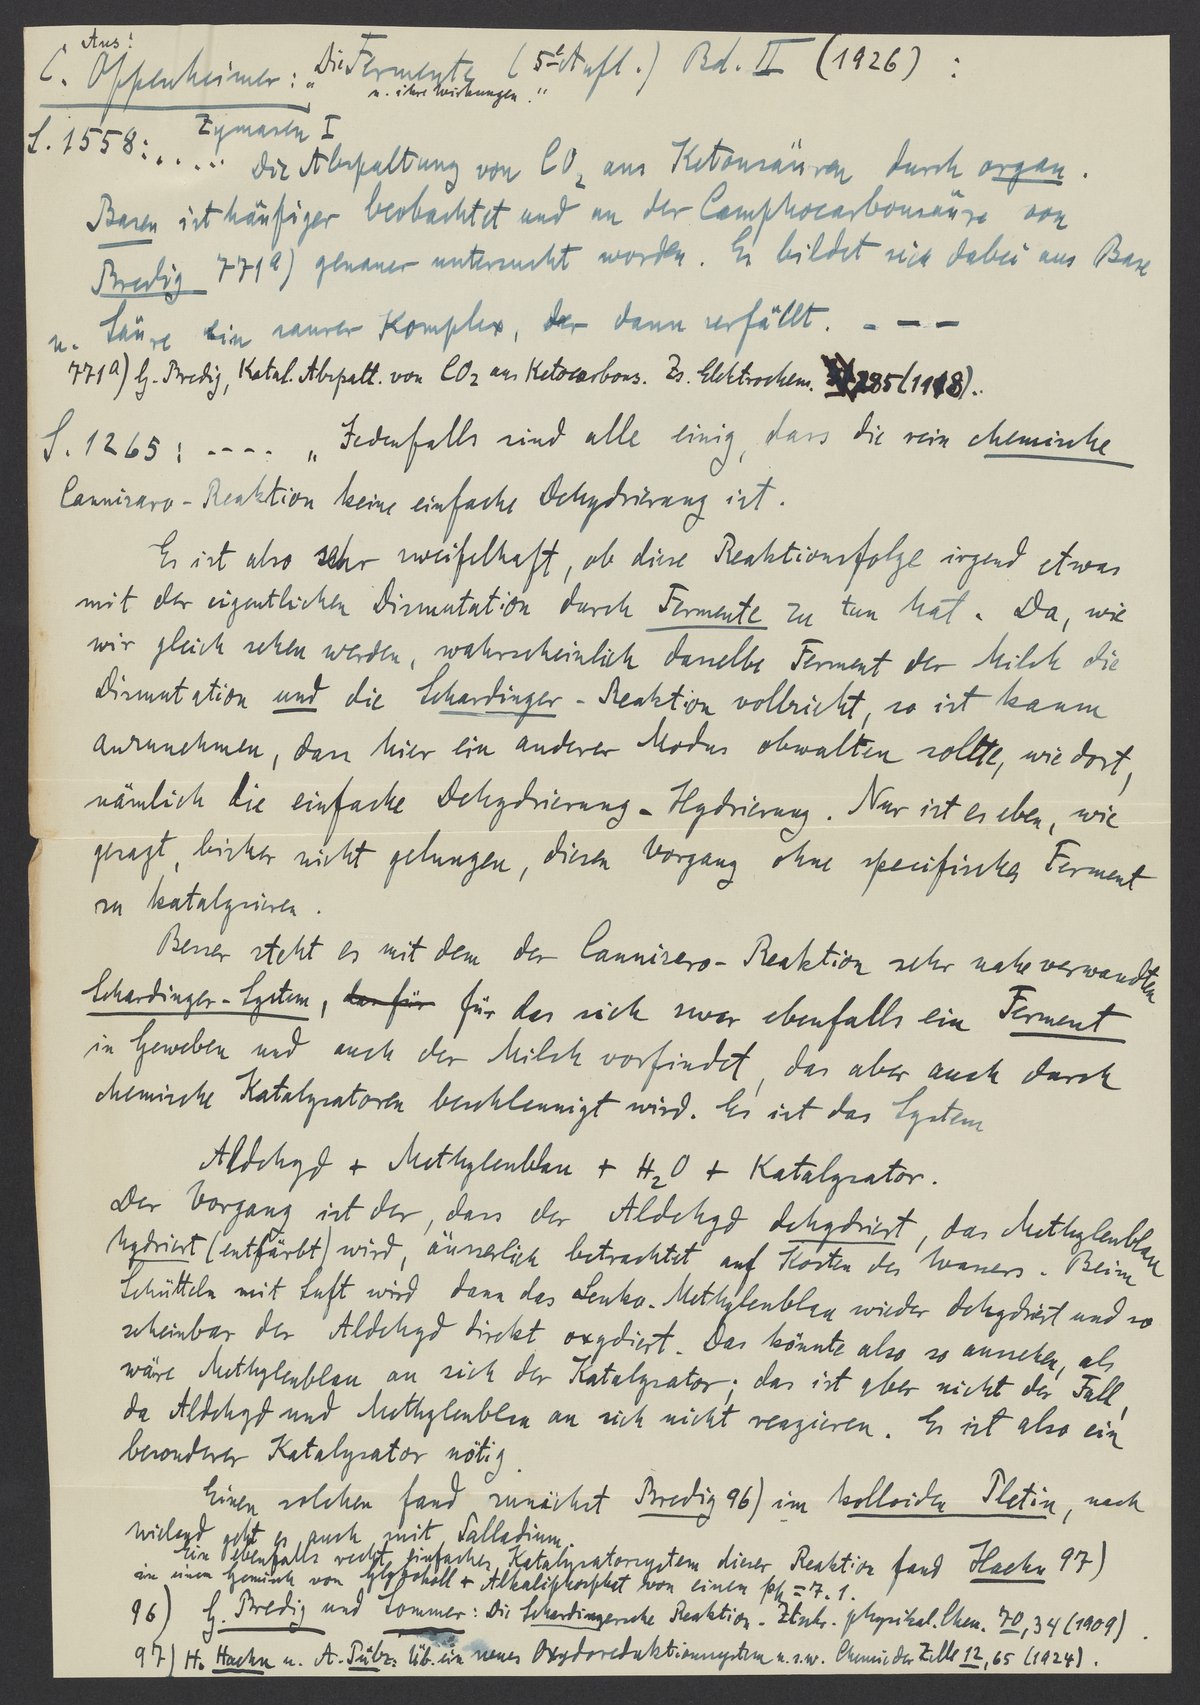 Aus:
C. Oppenheimer: „Die Fermente (5te Aufl.) Bd. II (1926) :
u. ihre Wirkungen."
Zymasen I
S. 1558: ..... Die Abspaltung von CO2 aus Ketonsäuren durch organ.
Basen ist häufiger beobachtet und an der Camphocarbonsäure von
Bredig 771a) genauer untersucht worden. Es bildet sich dabei aus Base
u. Säure ein saurer Komplex, der dann zerfällt. - - -
771a) G. Bredig, Katal. Abspalt. von CO2 aus Ketocarbons. Zs. Elektrochem. 285 (1918)..
S. 1265: ---- „Jedenfalls sind alle einig, dass die rein chemische
Cannizaro-Reaktion keine einfache Dehydrierung ist.
Es ist also sehr zweifelhaft, ob diese Reaktionsfolge irgend etwas
mit der eigentlichen Dismutation durch Fermente zu tun hat. Da, wie
wir gleich sehen werden, wahrscheinlich dasselbe Ferment der Milch die
Dismutation und die Schardinger-Reaktion vollzieht, so ist kaum
anzunehmen, dass hier ein anderer Modus obwalten sollte, wie dort,
nämlich die einfache Dehydrierung-Hydrierung. Nur ist es eben, wie
gesagt, bisher nicht gelungen, diesen Vorgang ohne specifisches Ferment
zu katalysieren.
Besser steht es mit dem der Cannizero-Reaktion sehr nahe verwandten
Schardinger-System, das für für das sich zwar ebenfalls ein Ferment
in Geweben und auch der Milch vorfindet, das aber auch durch
chemische Katalysatoren beschleunigt wird. Es ist das System
Aldehyd + Methylenblau + H2O + Katalysator.
Der Vorgang ist der, dass der Aldehyd dehydriert, das Methylenblau
hydriert (entfärbt) wird, äusserlich betrachtet auf Kosten des Wassers. Beim
Schütteln mit Luft wird dann das Leuko-Methylenblau wieder dehydriert und so
scheinbar der Aldehyd direkt oxydiert. Das könnte also so aussehen, als
wäre Methylenblau an sich der Katalysator; das ist aber nicht der Fall,
da Aldehyd und Methylenblau an sich nicht reagieren. Es ist also ein
besonderer Katalysator nötig.
Einen solchen fand zunächst Bredig 96) im kolloiden Platin, nach
Wieland geht es auch mit Palladium.
Ein ebenfalls recht einfaches Katalysatorsystem dieser Reaktion fand Haehn 97)
in einem Gemisch von Glykokoll + Alkaliphosphat von einem pH = 7.1.
96) G. Bredig und Sommer: Die Schardingersche Reaktion. Ztschr. physikal. Chem. 70, 34 (1909).
97) H. Haehn u. A. Pülz: Üb. ein neues Oxydoreduktionssystem u.s.w. Chemie der Zelle 12, 65 (1924).